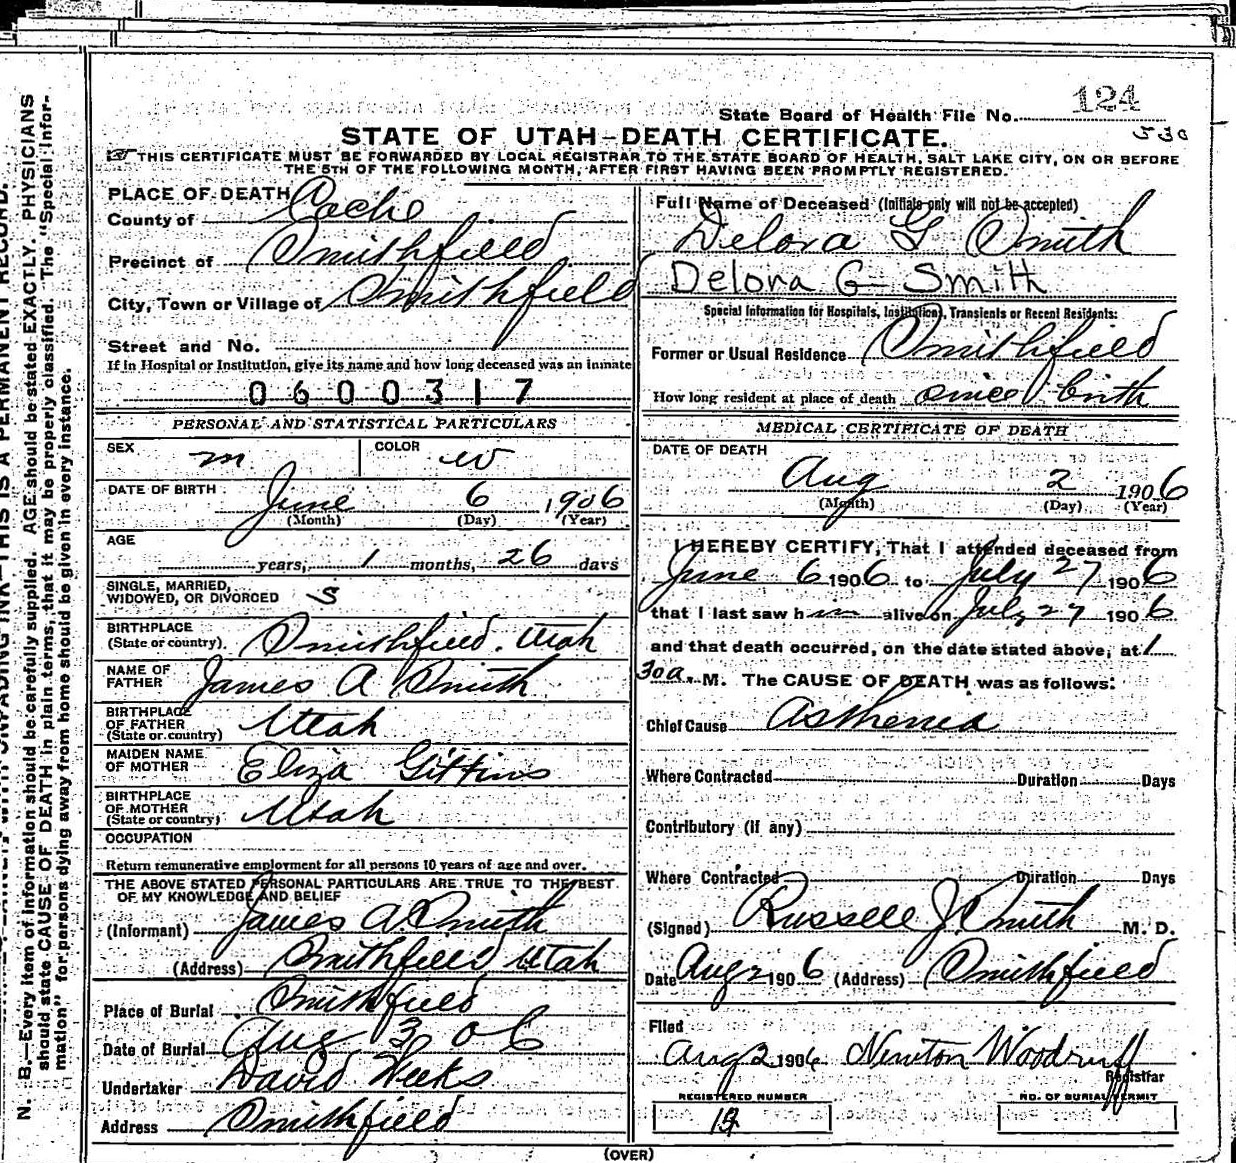 124
State Board of Health File No.
530
STATE OF UTAH—DEATH CERTIFICATE.
THIS CERTIFICATE MUST BE FORWARDED BY LOCAL REGISTRAR TO THE STATE BOARD OF HEALTH, SALT LAKE CITY, ON OR BEFORE
THE 5TH OF THE FOLLOWING MONTH, AFTER FIRST HAVING BEEN PROMPTLY REGISTERED.
PLACE OF DEATH
County of Cache
Precinct of Smithfield
City, Town or Village of Smithfield
Street and No.
If in Hospital or Institution, give its name and how long deceased was an inmate
0600317
PERSONAL AND STATISTICAL PARTICULARS
SEX m COLOR w
DATE OF BIRTH June 6 1906
(Month) (Day) (Year)
AGE
years, 1 months, 26 days
SINGLE, MARRIED,
WIDOWED, OR DIVORCED S
BIRTHPLACE
(State or country). Smithfield. Utah
NAME OF
FATHER James A Smith
BIRTHPLACE
OF FATHER
(State or country) Utah
MAIDEN NAME
OF MOTHER Eliza Gittins
BIRTHPLACE
OF MOTHER
(State or country) Utah
OCCUPATION
Return remunerative employment for all persons 10 years of age and over.
THE ABOVE STATED PERSONAL PARTICULARS ARE TRUE TO THE BEST
OF MY KNOWLEDGE AND BELIEF
(Informant) James A. Smith
(Address) Smithfield Utah
Place of Burial Smithfield
Date of Burial Aug 3 06
Undertaker David Weeks
Address Smithfield
Full Name of Deceased (Initials only will not be accepted)
Delora G Smith
Delora G Smith
Special Information for Hospitals, Institutions, Transients or Recent Residents:
Former or Usual Residence Smithfield
How long resident at place of death since birth
MEDICAL CERTIFICATE OF DEATH
DATE OF DEATH
Aug 2 1906
(Month) (Day) (Year)
I HEREBY CERTIFY, That I attended deceased from
June 6 1906 to July 27 1906
that I last saw him alive on July 27 1906
and that death occurred, on the date stated above, at 1
30 a. M. The CAUSE OF DEATH was as follows:
Chief Cause Asthenia
Where Contracted Duration Days
Contributory (if any)
Where Contracted Duration Days
(Signed) Russell J. Smith M. D.
Date Aug 2 1906 (Address) Smithfield
Filed
Aug 2 1906 Newton Woodruff
Registrar
REGISTERED NUMBER NO. OF BURIAL PERMIT
(OVER)
N. B.—Every item of information should be carefully supplied. AGE should be stated EXACTLY. PHYSICIANS
should state CAUSE OF DEATH in plain terms, that it may be properly classified. The "Special Infor-
mation" for persons dying away from home should be given in every instance.
THIS IS A PERMANENT RECORD.